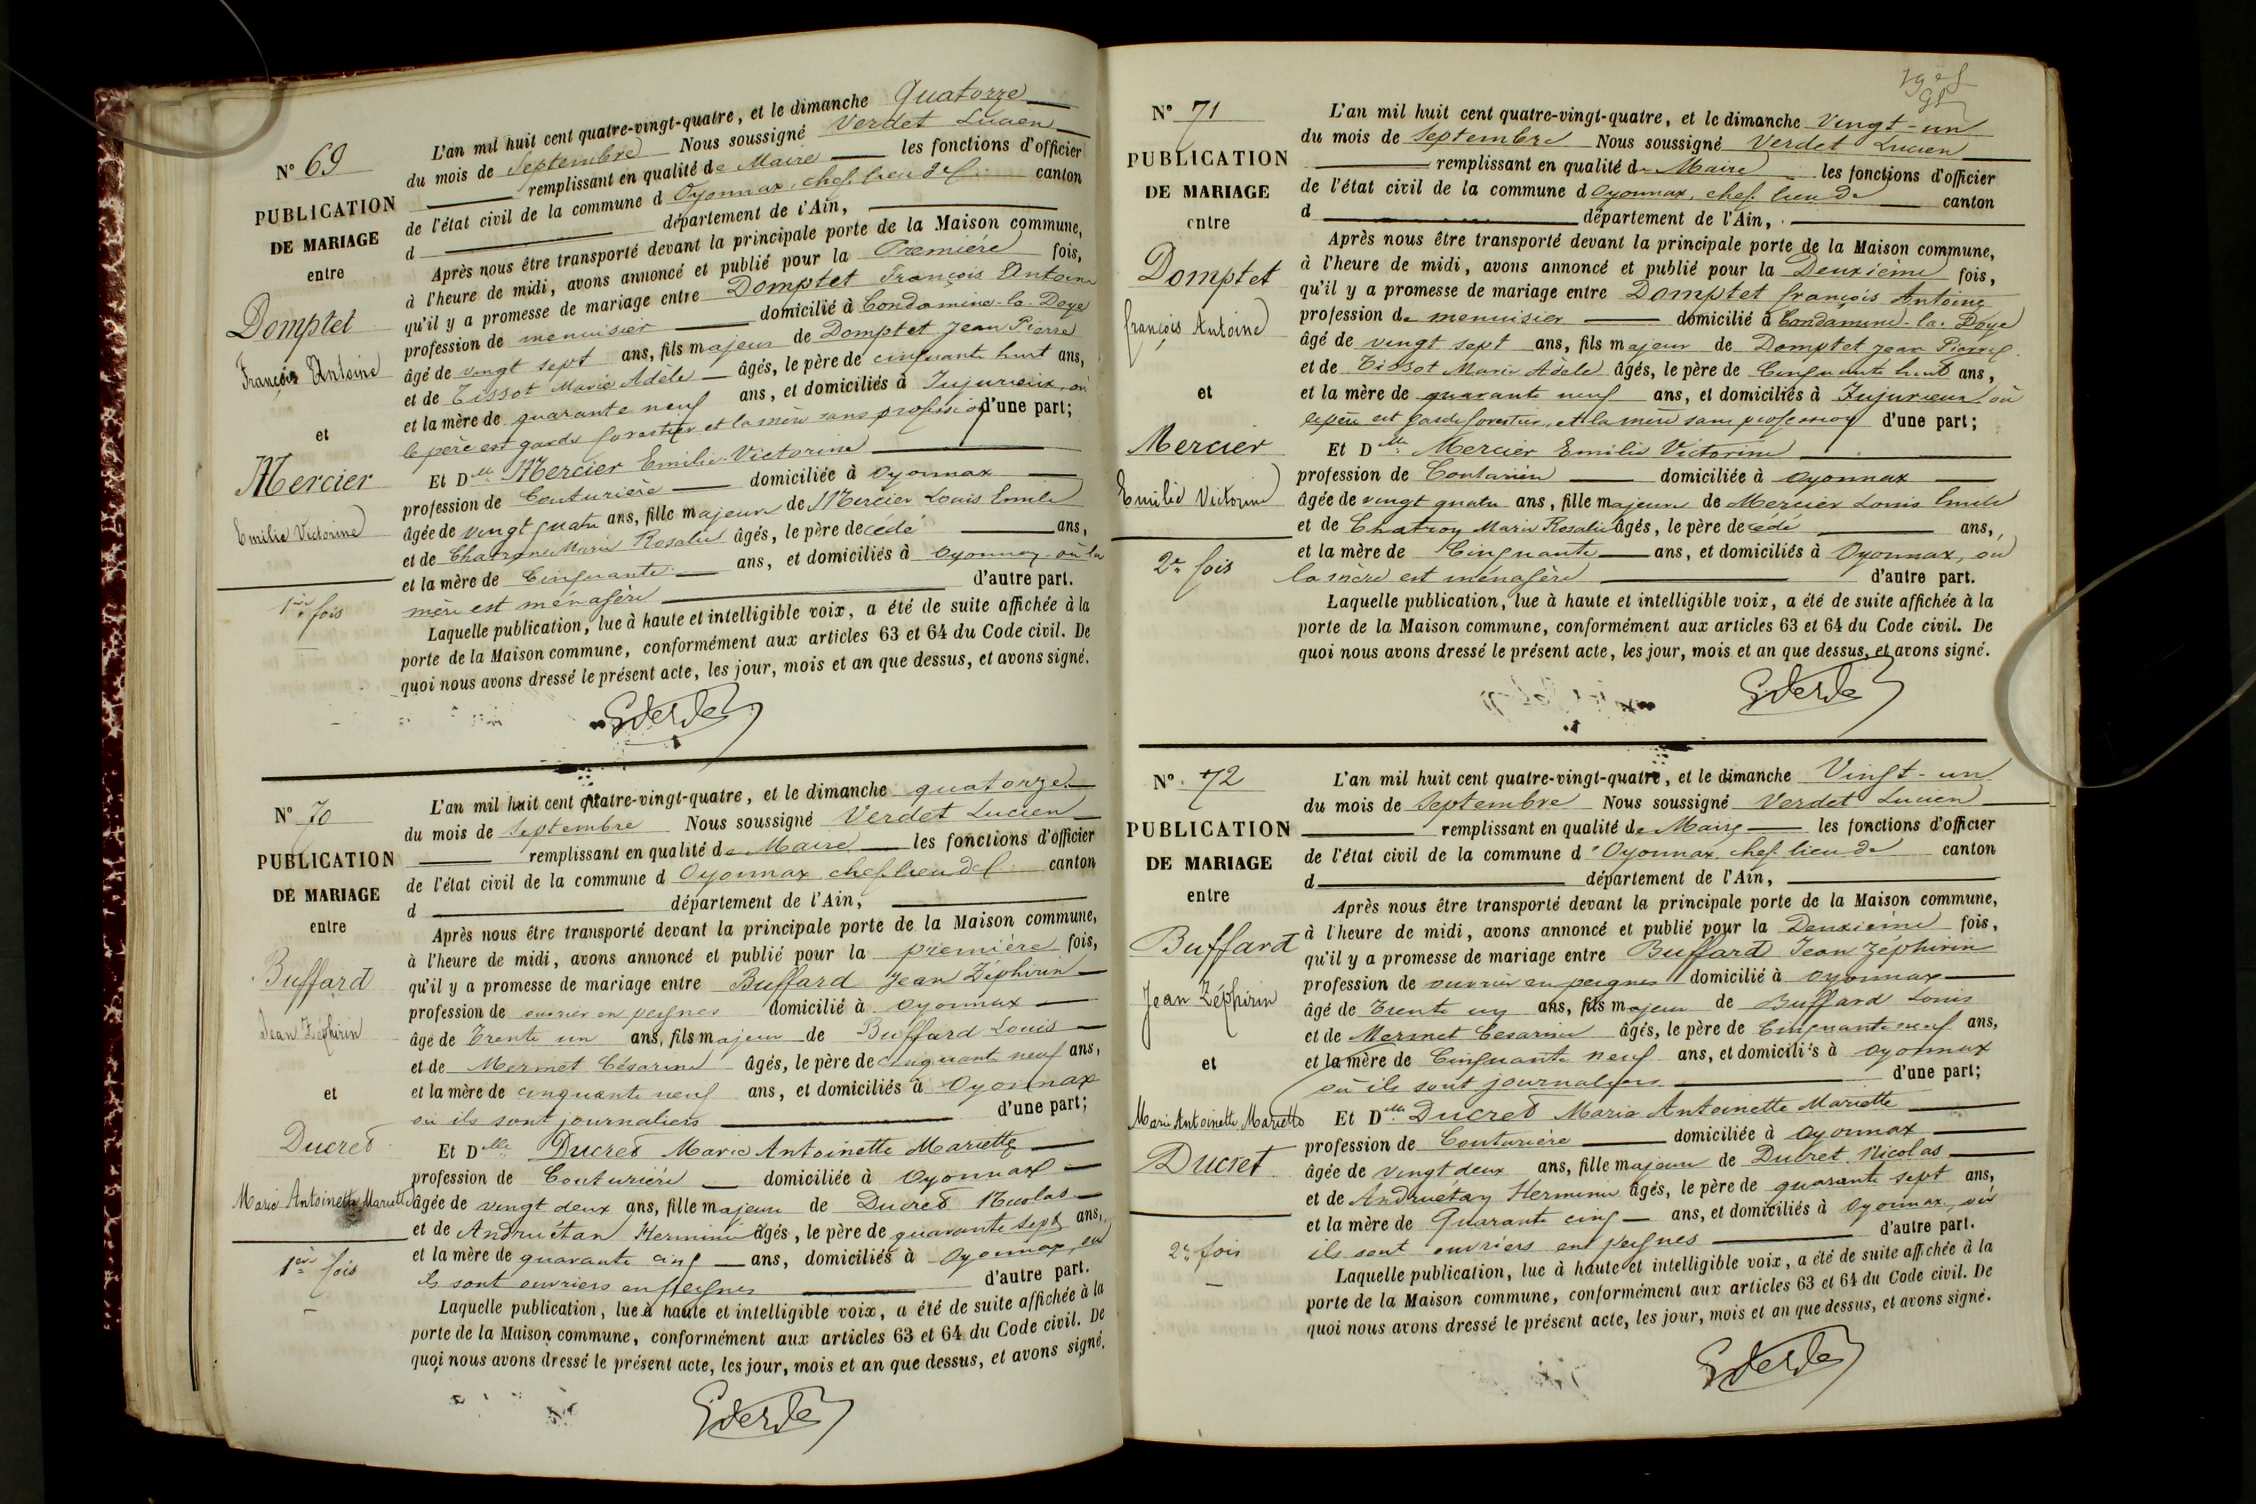 N° 69
PUBLICATION
DE MARIAGE
entre
Domptet
François Antoine
et
Mercier
Emilie Victorine
1ère fois
L'an mil huit cent quatre-vingt-quatre, et le dimanche Quatorze
du mois de Septembre Nous soussigné Verdet Lucien
remplissant en qualité de Maire les fonctions d'officier
de l'état civil de la commune d Oyonnax, chef lieu de canton
d département de l'Ain,
Après nous être transporté devant la principale porte de la Maison commune,
à l'heure de midi, avons annoncé et publié pour la Première fois,
qu'il y a promesse de mariage entre Domptet François Antoine
profession de menuisier domicilié à Condamine-la-Doye
âgé de vingt sept ans, fils majeur de Domptet Jean Pierre
et de Tissot Marie Adèle âgés, le père de cinquante huit ans,
et la mère de quarante neuf ans, et domiciliés à Jujurieux, où
le père est garde forestier et la mère sans profession d'une part;
Et Dlle Mercier Emilie Victorine
profession de Couturière domiciliée à Oyonnax
âgée de vingt quatre ans, fille majeure de Mercier Louis Emile
et de Marie Rosalie âgés, le père décédé ans,
et la mère de Cinquante ans, et domiciliés à Oyonnax où la
mère est ménagère d'autre part.
Laquelle publication, lue à haute et intelligible voix, a été de suite affichée à la
porte de la Maison commune, conformément aux articles 63 et 64 du Code civil. De
quoi nous avons dressé le présent acte, les jour, mois et an que dessus, et avons signé.
N° 70
PUBLICATION
DE MARIAGE
entre
Buffard
Jean Zéphirin
et
Ducret
Marie Antoinette Mariette
1ère fois
L'an mil huit cent quatre-vingt-quatre, et le dimanche quatorze
du mois de Septembre Nous soussigné Verdet Lucien
remplissant en qualité de Maire les fonctions d'officier
de l'état civil de la commune d Oyonnax chef lieu de canton
d département de l'Ain,
Après nous être transporté devant la principale porte de la Maison commune,
à l'heure de midi, avons annoncé et publié pour la première fois,
qu'il y a promesse de mariage entre Buffard Jean Zéphirin
profession de ouvrier en peignes domicilié à Oyonnax
âgé de Trente un ans, fils majeur de Buffard Louis
et de Mermet Césarine âgés, le père de cinquante neuf ans,
et la mère de cinquante neuf ans, et domiciliés à Oyonnax
où ils sont journaliers d'une part;
Et Dlle Ducret Marie Antoinette Mariette
profession de Couturière domiciliée à Oyonnax
âgée de vingt deux ans, fille majeure de Ducret Nicolas
et de Andruétan Herminie âgés, le père de quarante sept ans,
et la mère de quarante cinq ans, domiciliés à Oyonnax, où
ils sont ouvriers en peignes d'autre part.
Laquelle publication, lue à haute et intelligible voix, a été de suite affichée à la
porte de la Maison commune, conformément aux articles 63 et 64 du Code civil. De
quoi nous avons dressé le présent acte, les jour, mois et an que dessus, et avons signé.
N° 71
PUBLICATION
DE MARIAGE
entre
Domptet
françois Antoine
et
Mercier
Emilie Victorine
2e fois
L'an mil huit cent quatre-vingt-quatre, et le dimanche Vingt-un
du mois de Septembre Nous soussigné Verdet Lucien
remplissant en qualité de Maire les fonctions d'officier
de l'état civil de la commune d Oyonnax, chef lieu de canton
d département de l'Ain,
Après nous être transporté devant la principale porte de la Maison commune,
à l'heure de midi, avons annoncé et publié pour la Deuxième fois,
qu'il y a promesse de mariage entre Domptet françois Antoine
profession de menuisier domicilié à Condamine-la-Doye
âgé de vingt sept ans, fils majeur de Domptet Jean Pierre
et de Tissot Marie Adèle âgés, le père de Cinquante huit ans,
et la mère de quarante neuf ans, et domiciliés à Jujurieux où
le père est garde forestier, et la mère sans profession d'une part;
Et Dlle Mercier Emilie Victorine
profession de Couturière domiciliée à Oyonnax
âgée de vingt quatre ans, fille majeure de Mercier Louis Emile
et de Chatron Marie Rosalie âgés, le père décédé ans,
et la mère de Cinquante ans, et domiciliés à Oyonnax, où
la mère est ménagère d'autre part.
Laquelle publication, lue à haute et intelligible voix, a été de suite affichée à la
porte de la Maison commune, conformément aux articles 63 et 64 du Code civil. De
quoi nous avons dressé le présent acte, les jour, mois et an que dessus, et avons signé.
N° 72
PUBLICATION
DE MARIAGE
entre
Buffard
Jean Zéphirin
et
Marie Antoinette Mariette
Ducret
2e fois
L'an mil huit cent quatre-vingt-quatre, et le dimanche Vingt-un
du mois de Septembre Nous soussigné Verdet Lucien
remplissant en qualité de Maire les fonctions d'officier
de l'état civil de la commune d'Oyonnax chef lieu de canton
d département de l'Ain,
Après nous être transporté devant la principale porte de la Maison commune,
à l'heure de midi, avons annoncé et publié pour la Deuxième fois,
qu'il y a promesse de mariage entre Buffard Jean Zéphirin
profession de ouvrier en peignes domicilié à Oyonnax
âgé de Trente un ans, fils majeur de Buffard Louis
et de Mermet Césarine âgés, le père de Cinquante neuf ans,
et la mère de Cinquante neuf ans, et domiciliés à Oyonnax
où ils sont journaliers d'une part;
Et Dlle Ducret Marie Antoinette Mariette
profession de Couturière domiciliée à Oyonnax
âgée de vingt deux ans, fille majeure de Ducret Nicolas
et de Andruétan Herminie âgés, le père de quarante sept ans,
et la mère de Quarante cinq ans, et domiciliés à Oyonnax, où
ils sont ouvriers en peignes d'autre part.
Laquelle publication, lue à haute et intelligible voix, a été de suite affichée à la
porte de la Maison commune, conformément aux articles 63 et 64 du Code civil. De
quoi nous avons dressé le présent acte, les jour, mois et an que dessus, et avons signé.